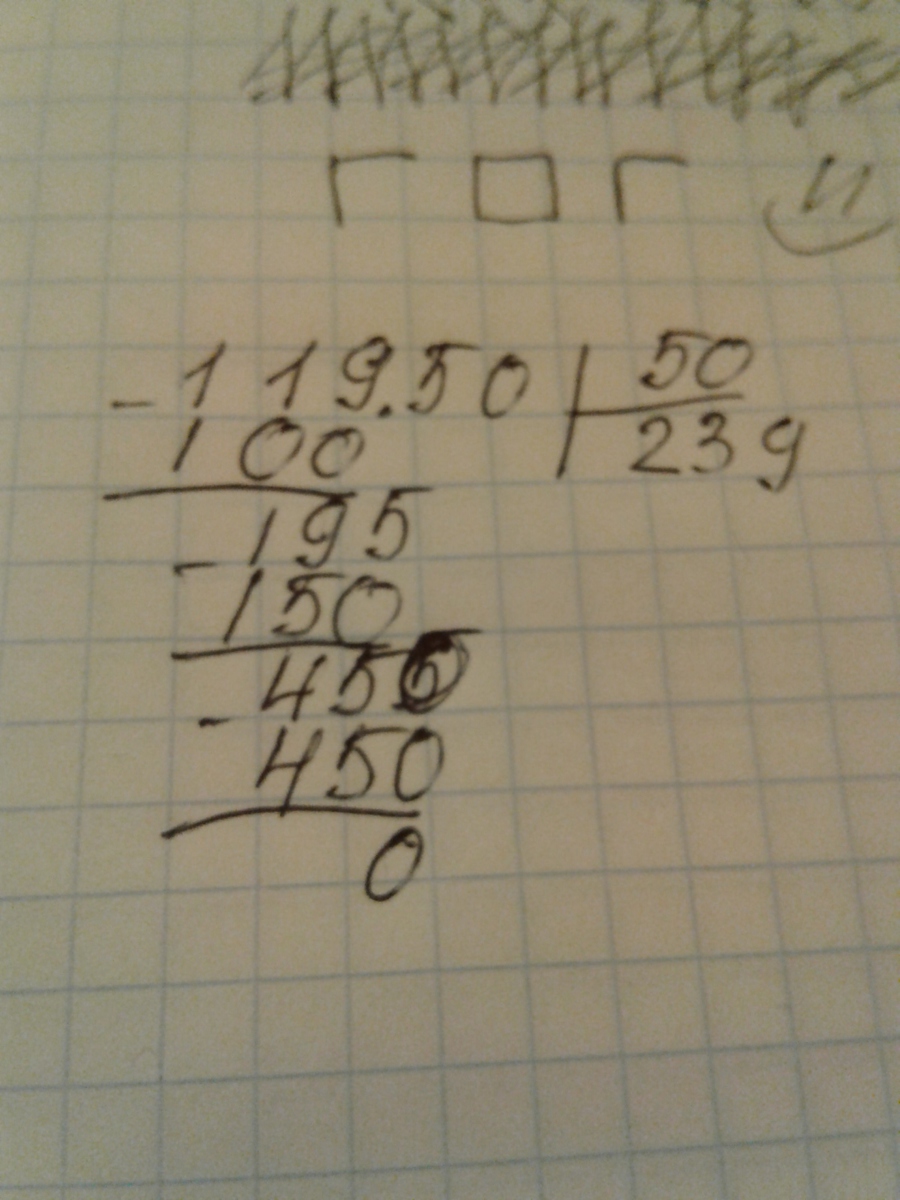 -119.50 | 50
100 | 239
-195
150
-450
450
0